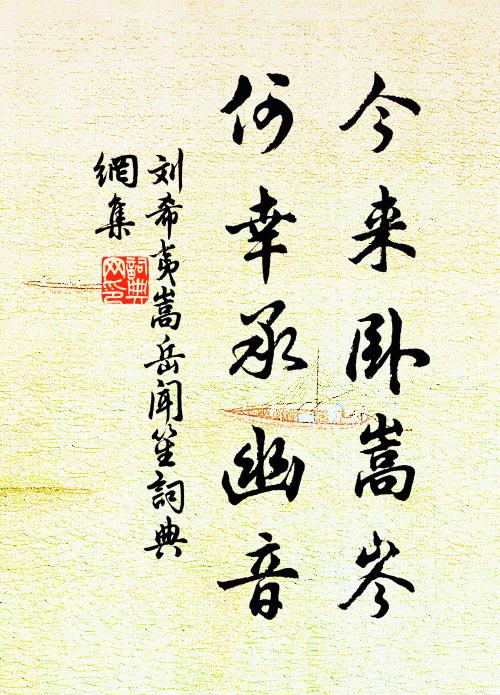 今来卧嵩岑
何幸承幽音
刘希夷嵩岳闻笙詞典
網集
詞典
网印